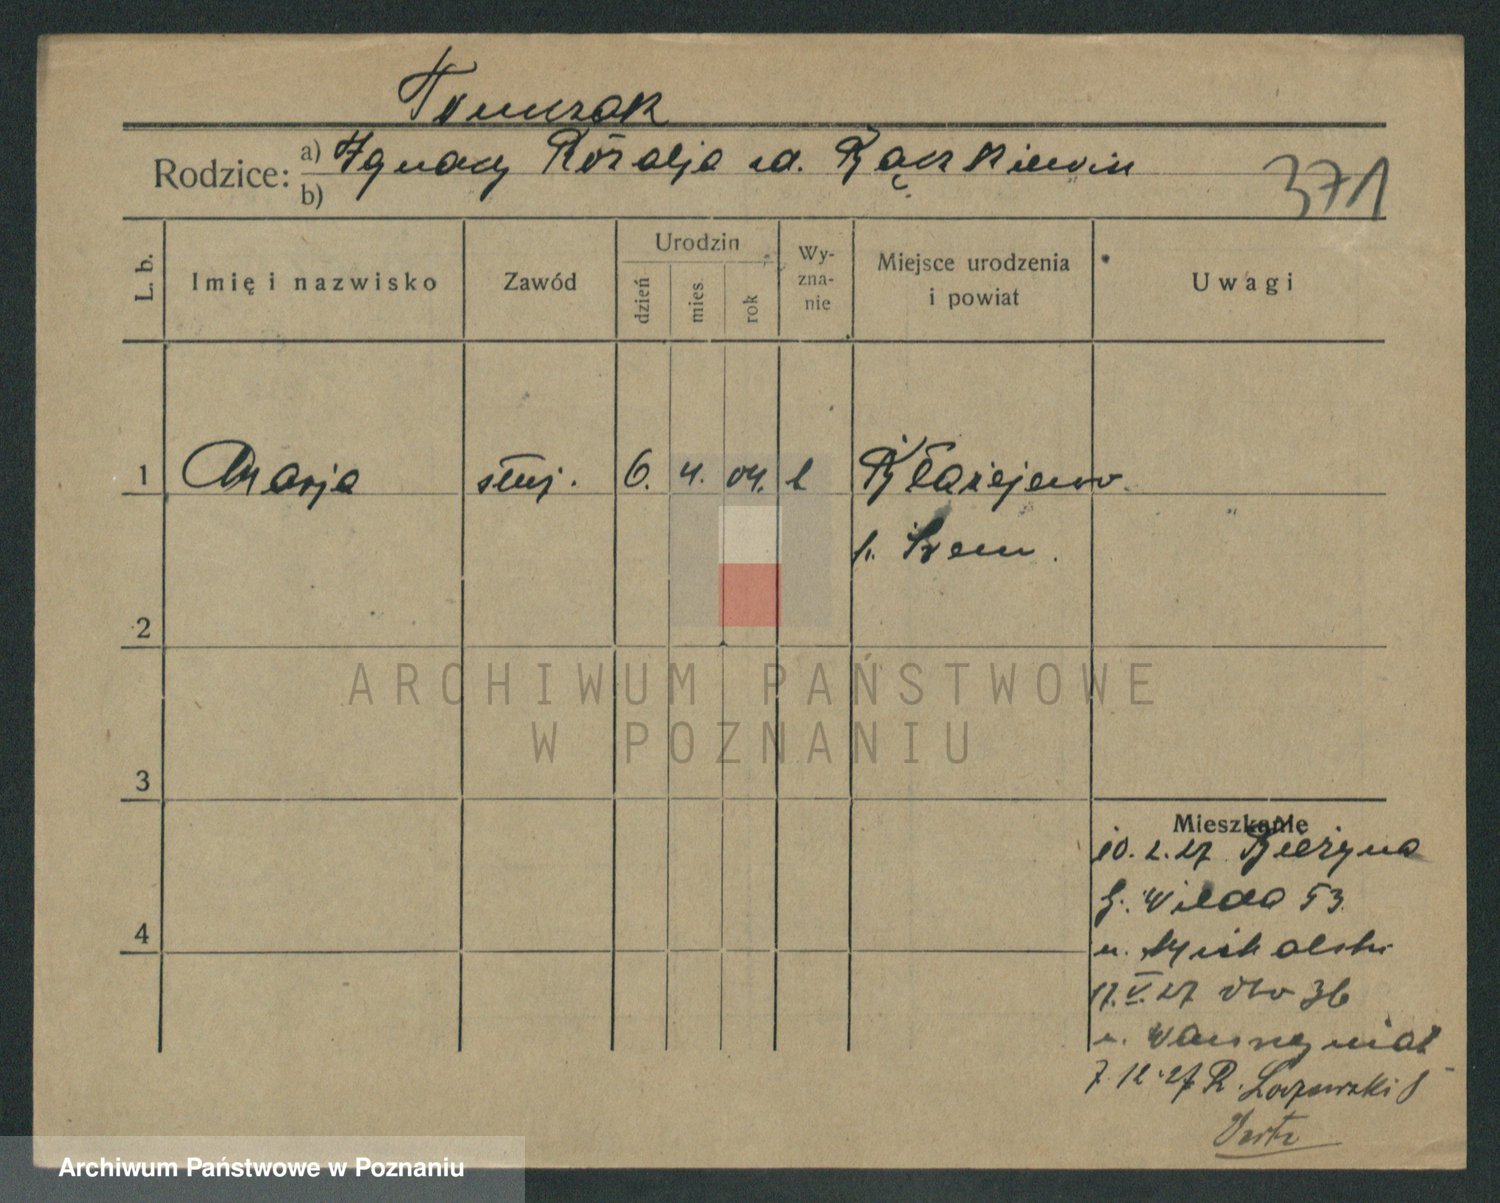 Tomczak
Rodzice: a) Ignacy Rozalja zd. Bączkiewicz
b)
371
L. b. Imię i nazwisko Zawód Urodzin dzień mies. rok Wy-zna-nie Miejsce urodzenia i powiat Uwagi
1 Marja służ. 6. 4. 04. k Błażejewo
p. Śrem.
2
3
4
Mieszkanie
10. 2. 27
G. Wilda 53
u. Michalski
17. V. 27 36
u.
7. 12. 27 R.
ARCHIWUM PAŃSTWOWE
W POZNANIU
Archiwum Państwowe w Poznaniu